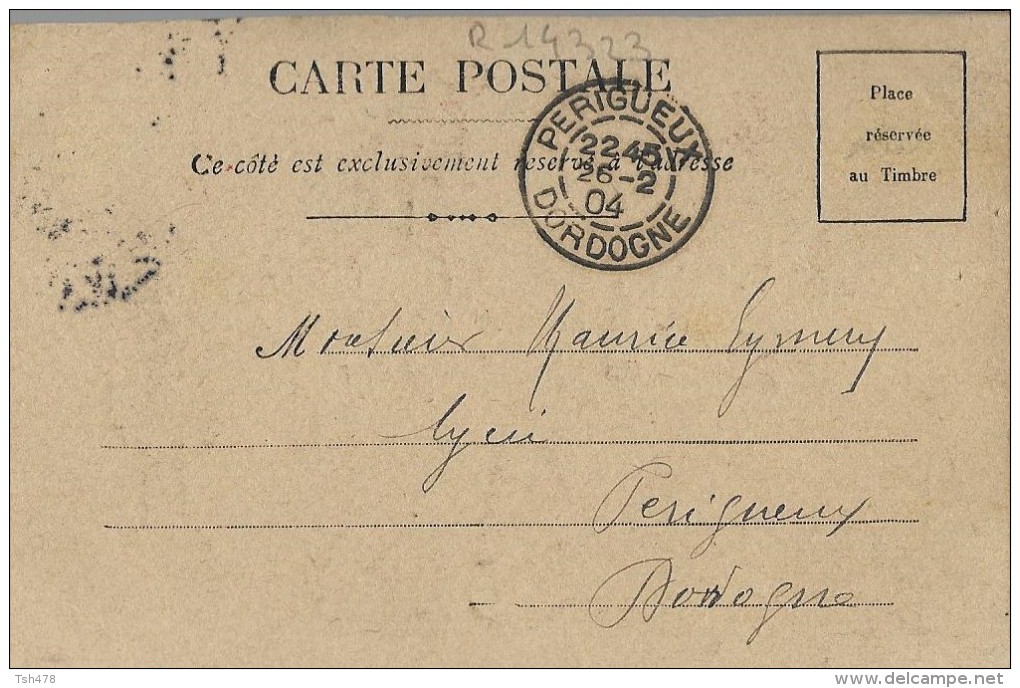 R 14323
CARTE POSTALE
Place
réservée
au Timbre
PERIGUEUX
22 45
26 - 2
04
DORDOGNE
Ce côté est exclusivement réservé à l'adresse
Monsieur Maurice Eymery
Lycée
Perigueux
Dordogne
Tsh478
delcampe.net